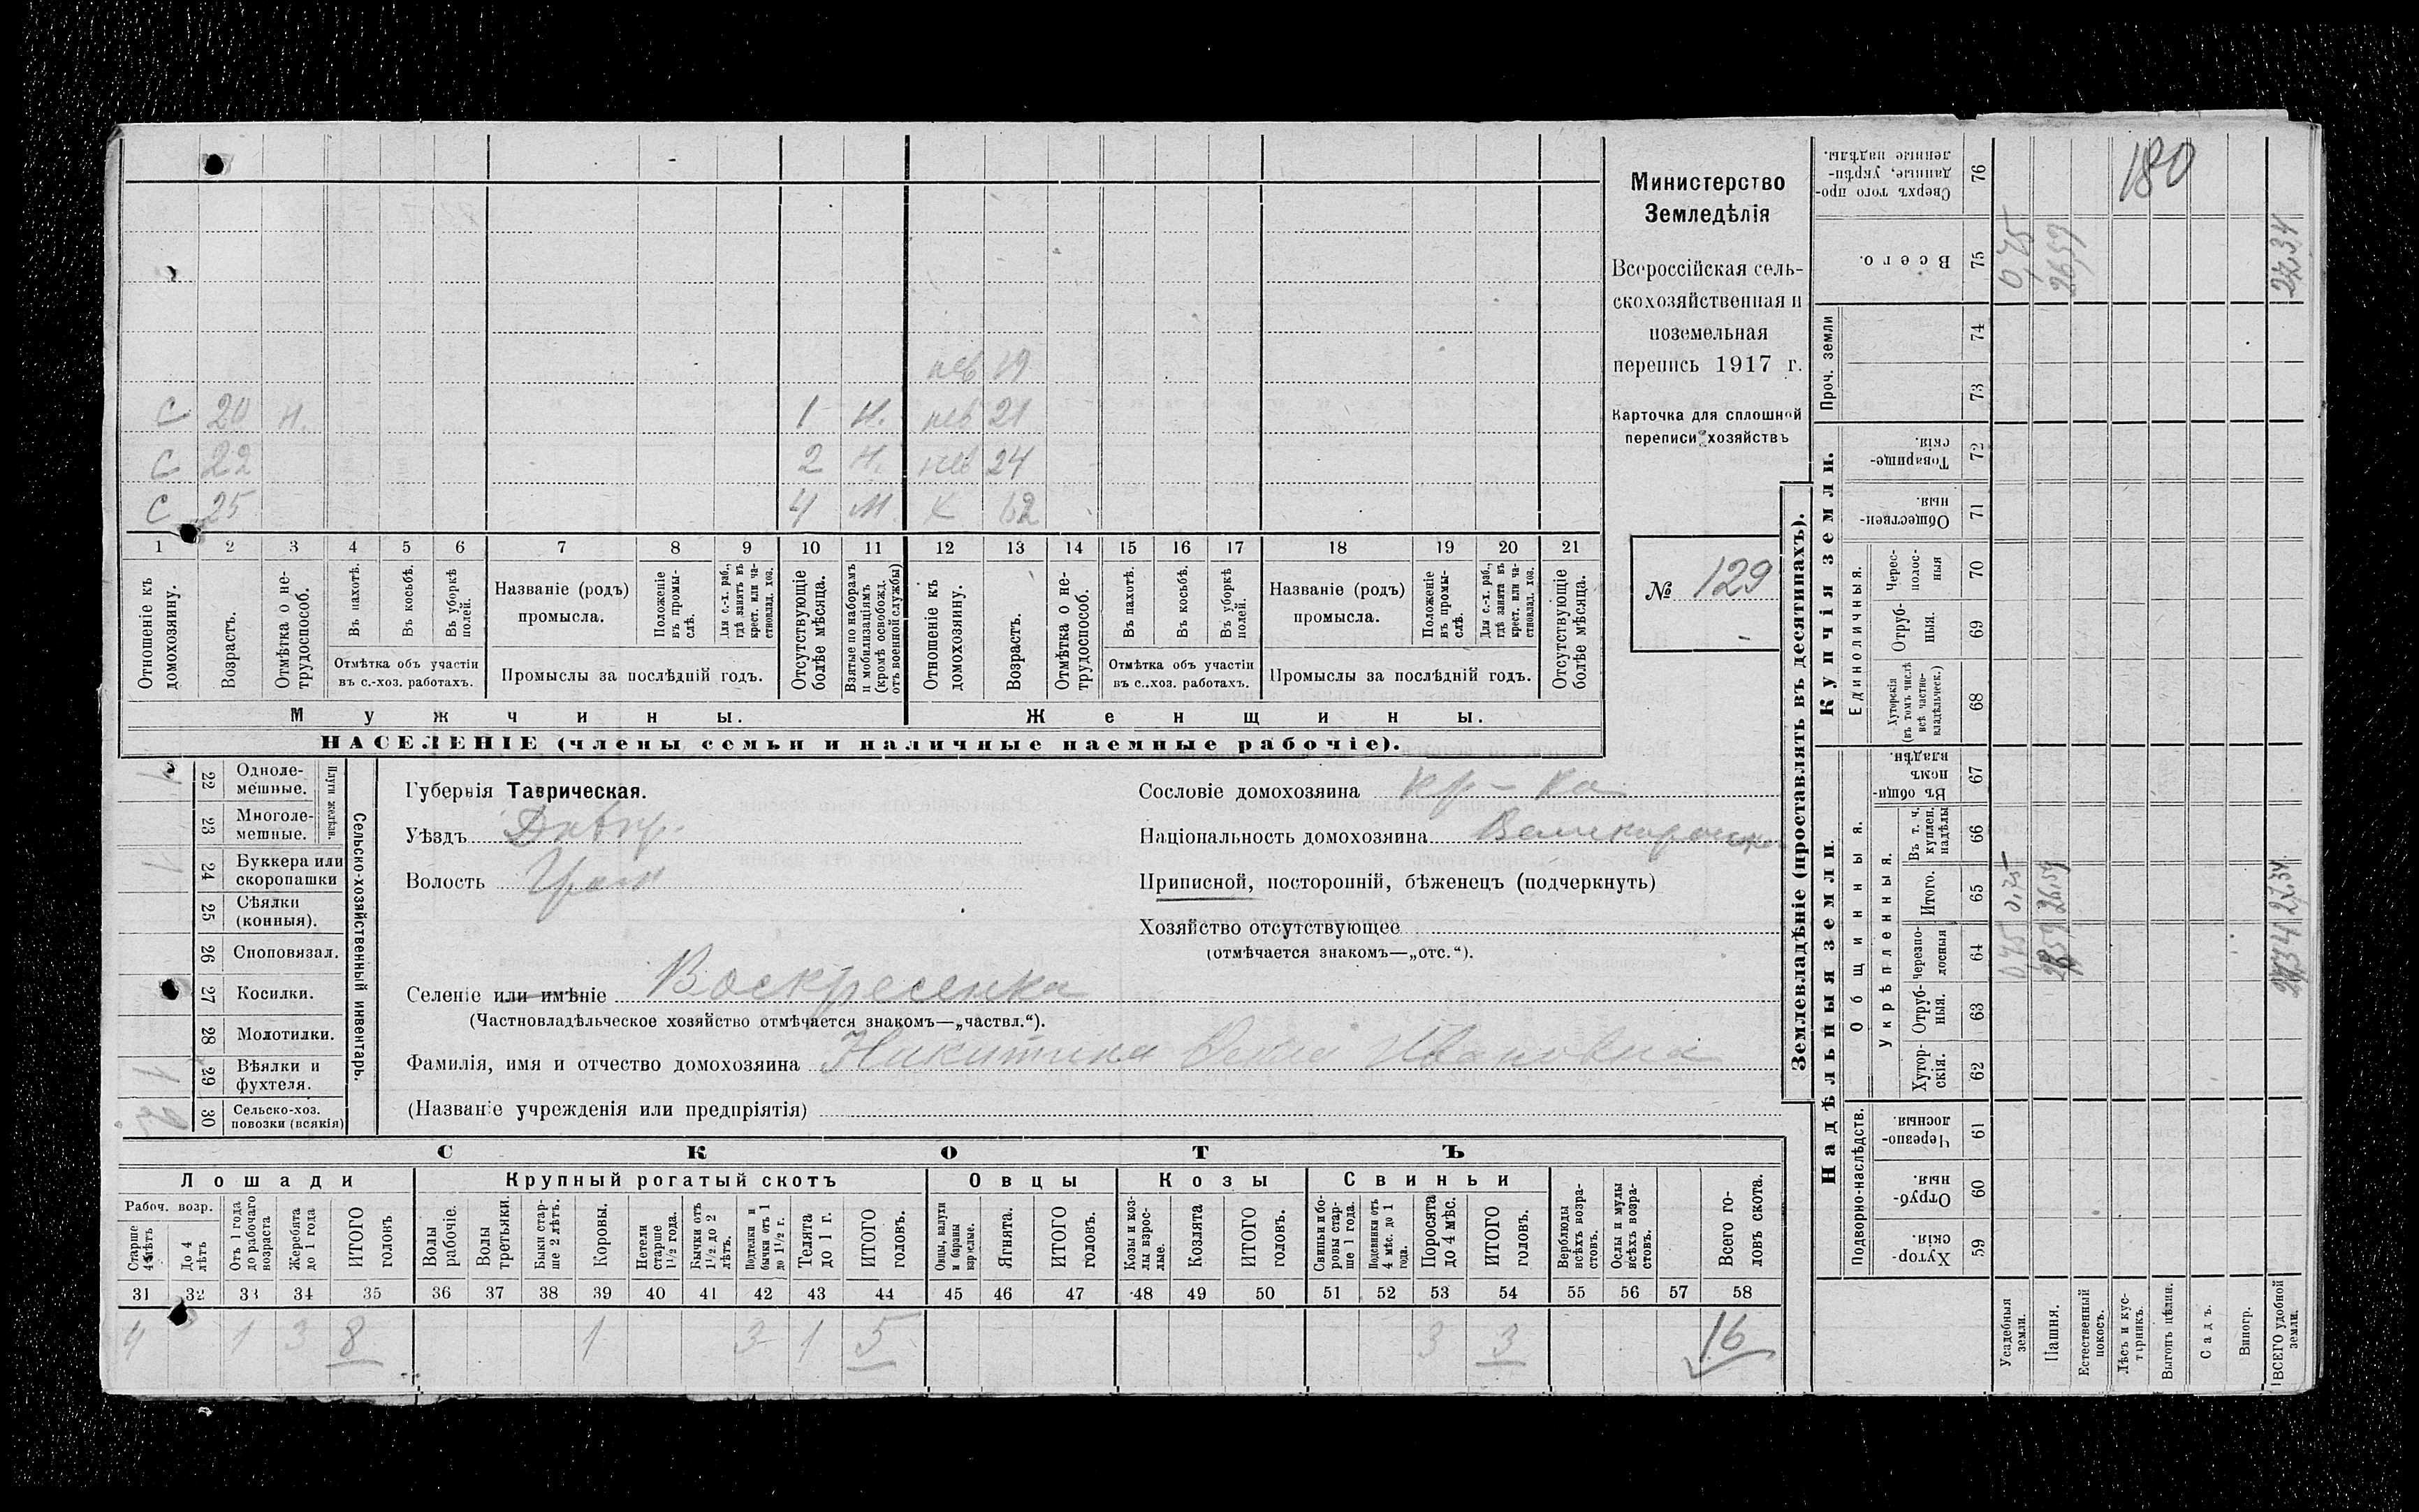 нев 19
С 20 н. 1 н. нев 21
С 22 2 н. нев 24
С 25 4 м. х 62
1 2 3 4 5 6 7 8 9 10 11 12 13 14 15 16 17 18 19 20 21
Отношеніе къ домохозяину.
Возрастъ.
Отмѣтка о не-трудоспособ.
Въ пахотѣ.
Въ косьбѣ.
Въ уборкѣ полей.
Отмѣтка объ участіи въ с.-хоз. работахъ.
Названіе (родъ) промысла.
Положеніе въ промы-слѣ.
Для с.-х. раб., гдѣ занятъ въ крест. или ча-стновлад. хоз.
Промыслы за послѣдній годъ.
Отсутствующіе болѣе мѣсяца.
Взятые по наборамъ и мобилизаціямъ (кромѣ освобожд. отъ военной службы)
Отношеніе къ домохозяину.
Возрастъ.
Отмѣтка о не-трудоспособ.
Въ пахотѣ.
Въ косьбѣ.
Въ уборкѣ полей.
Отмѣтка объ участіи въ с.-хоз. работахъ.
Названіе (родъ) промысла.
Положеніе въ промы-слѣ.
Для с.-х. раб., гдѣ занята въ крест. или ча-стновлад. хоз.
Промыслы за послѣдній годъ.
Отсутствующіе болѣе мѣсяца.
Мужчины.
Женщины.
НАСЕЛЕНІЕ (члены семьи и наличные наемные рабочіе).
Министерство
Земледѣлія
Всероссійская сель-
скохозяйственная и
поземельная
перепись 1917 г.
Карточка для сплошной
переписи хозяйствъ
№ 129
Сельско-хозяйственный инвентарь.
Плуги желѣзн.
22 Одноле-мешные. 1
23 Многоле-мешные.
24 Буккера или скоропашки 1
25 Сѣялки (конныя).
26 Сноповязал.
27 Косилки.
28 Молотилки.
29 Вѣялки и фухтеля. 1
30 Сельско-хоз. повозки (всякія) 2
Губернія Таврическая.
Уѣздъ Днѣпр.
Волость
Селеніе или имѣніе Воскресенка
(Частновладѣльческое хозяйство отмѣчается знакомъ—„частвл.“).
Фамилія, имя и отчество домохозяина Никитина Ивановна
(Названіе учрежденія или предпріятія)
Сословіе домохозяина кр-ка
Національность домохозяина Великоросс
Приписной, посторонній, бѣженецъ (подчеркнуть)
Хозяйство отсутствующее
(отмѣчается знакомъ—„отс.“).
СКОТЪ
Лошади
Крупный рогатый скотъ
Овцы
Козы
Свиньи
Рабоч. возр.
Старше 4 лѣтъ
До 4 лѣтъ
Отъ 1 года до рабочаго возраста
Жеребята до 1 года
ИТОГО головъ.
Волы рабочіе.
Волы третьяки.
Быки стар-ше 2 лѣтъ.
Коровы.
Нетели старше 1½ года.
Бычки отъ 1½ до 2 лѣтъ.
Подтелки и бычки отъ 1 до 1½ г.
Телята до 1 г.
ИТОГО головъ.
Овцы, валухи и бараны взрослые.
Ягнята.
ИТОГО головъ.
Козы и коз-лы взрос-лые.
Козлята
ИТОГО головъ.
Свиньи и бо-ровы стар-ше 1 года.
Подсвинки отъ 4 мѣс. до 1 года.
Поросята до 4 мѣс.
ИТОГО головъ.
Верблюды всѣхъ возра-стовъ.
Ослы и мулы всѣхъ возра-стовъ.
Всего го-ловъ скота.
31 32 33 34 35 36 37 38 39 40 41 42 43 44 45 46 47 48 49 50 51 52 53 54 55 56 57 58
4 1 3 8 1 3 1 5 3 3 16
Землевладѣніе (проставлять въ десятинахъ).
Надѣльныя земли.
Купчія земли.
Проч. земли
Подворно-наслѣдств.
Общинныя.
Укрѣпленныя.
Единоличныя.
59 Хутор-скія.
60 Отруб-ныя.
61 Черезпо-лосныя.
62 Хутор-скія.
63 Отруб-ныя.
64 Черезпо-лосныя
65 Итого.
66 Въ т. ч. куплен. надѣлы
67 Въ общи-номъ владѣн.
68 Хуторскія (въ томъ числѣ всѣ частно-владѣльческ.)
69 Отруб-ныя.
70 Черес-полос-ныя
71 Обществен-ныя.
72 Товарище-скія.
73
74
75 Всего.
76 Сверхъ того про-данные, укрѣп-ленные надѣлы.
Усадебныя земли. 0,75 0,75 0,75
Пашня. 26,59 26,59 26,59
Естественный покосъ.
Лѣсъ и кус-тарникъ.
Выгонъ цѣлин.
Садъ.
Виногр.
ВСЕГО удобной земли. 27,34 27,34 27,34
180